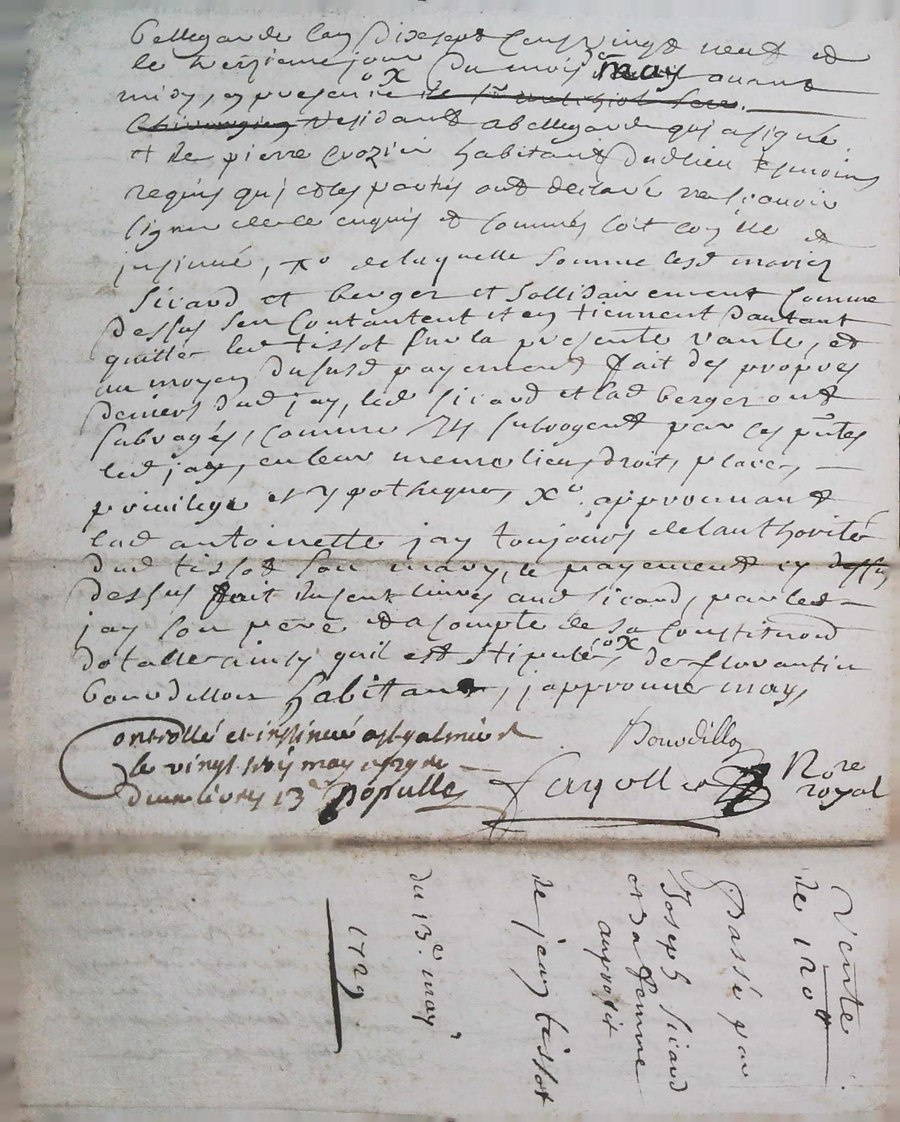 bellegarde l'an dixsept cens vingt neuf et
le treizieme jour du mois may avant
midy, en presence de
Chirurgien residant a bellegarde qui a signé
et de pierre crozier habitant dud lieu tesmoins
requis qui et les parties ont declaré ne scavoir
signer de ce enquis et sommés soit et
insinué, de laquelle somme lesd mariez
sicard et berger et sollidairement comme
dessus sen contantent et en tiennent dautant
quitte led tissot sur la presente vante, et
au moyen dususd payement fait des propres
deniers dud jay, led sicard et lad berger ont
subrogés, comme ils subrogent par ces ptes
led jay, en leur meme lieu, droit, place,
privilege et ypotheque, approuvant
lad antoinette jay toujours de lauthorité
dud tissot son mary, le payement cy dessus
dessus fait livres aud sicard, par led
jay son pere et a compte de sa constituon
dotalle ainsy quil est stipulé, de florantin
bourdillon habitant, japprouve may,
Controllé et insinué a st galmier
le vingt may
livres 13 s populle
Bourdillon
Nore
royal
Vente
de 120 ₶
Passé par
Joseph Sicard
et sa femme
au profit
de jean tissot
du 13e may
1729